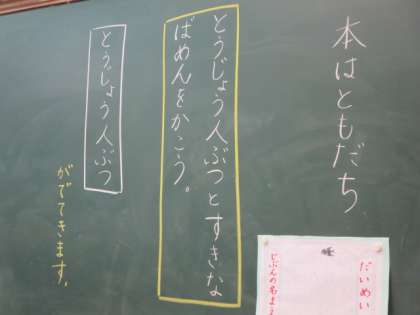 本はともだち
とうじょう人ぶつとすきな
ばめんをかこう。
とうじょう人ぶつ
がでてきます。
だいめい
じぶんの名まえ